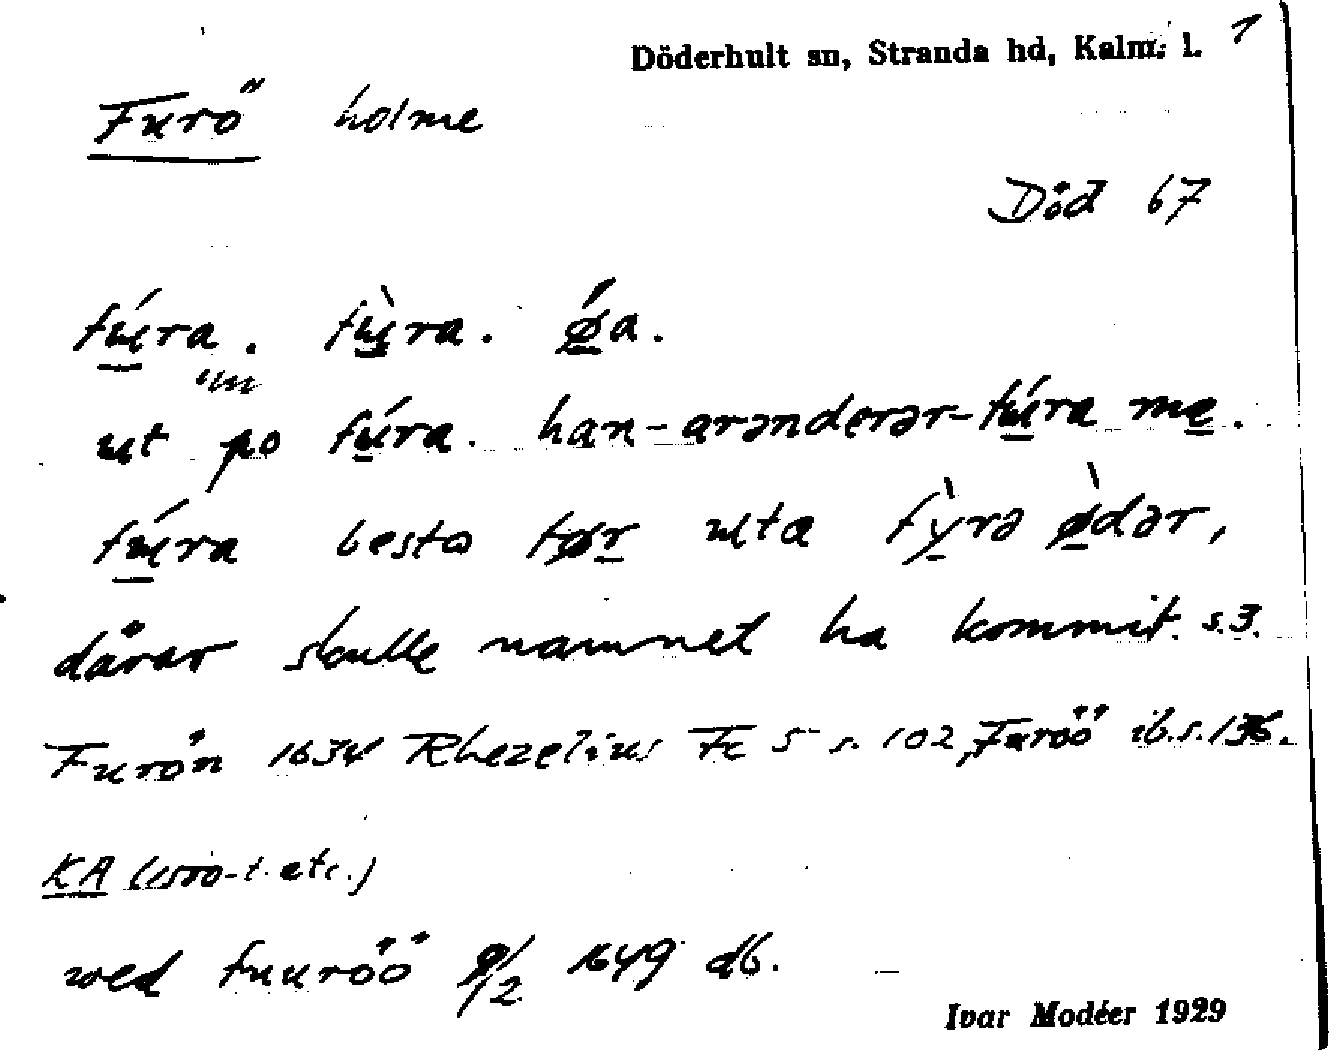 Döderhult sn, Stranda hd, Kalm. l. 1
Furö holme
Död 67
fúra. fùra. ǿa.
ut po fúra. han-arənderər-fúra me.
fúra besto før uta fỳrə ø̀dər,
dårar skulle namnet ha kommit. s.3.
Furön 1634 Rhezelius Fc 5 s. 102, Furöö ib.s.136.
KA (1500-t. etc.)
wed fuuröö 9/2 1649 db.
Ivar Modéer 1929